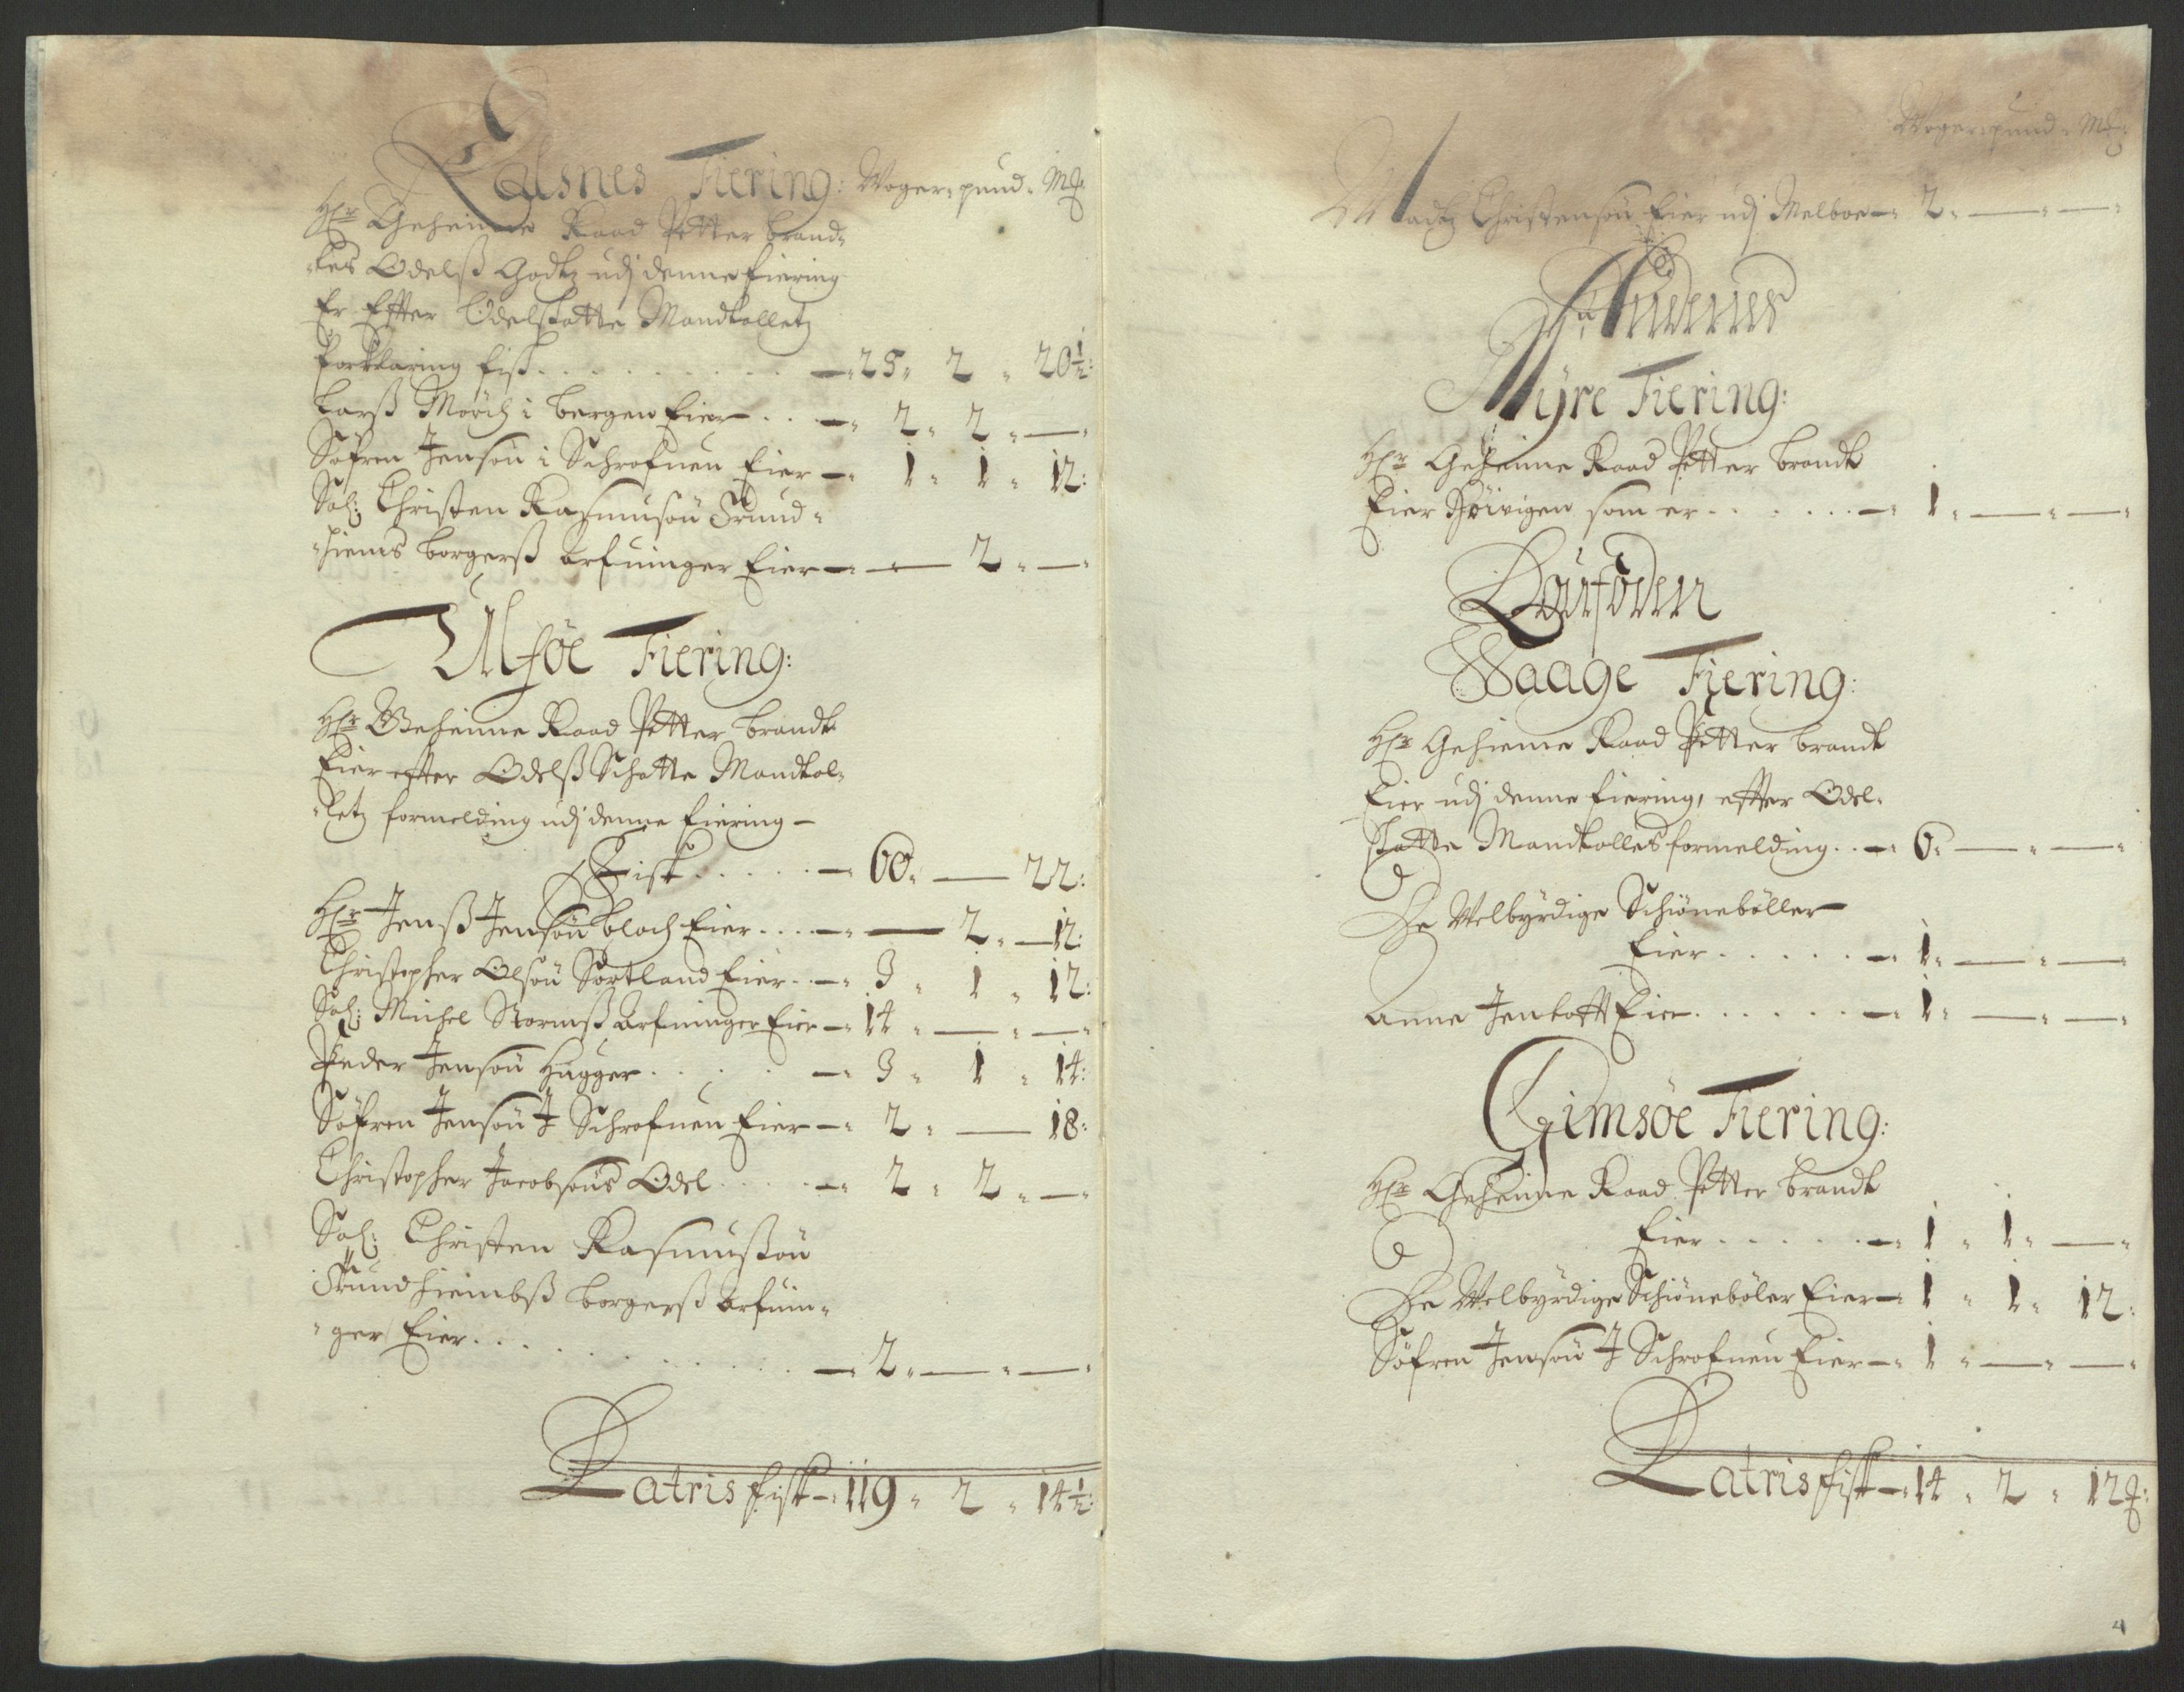 Eidsnes Fiering: Woger= pund= M𝔎:
Hr Geheime Raad Petter Brand=
=tes Odelß Godtz udj denne fiering
Er Effter Odelskatte Mandtalletz
forklaring fisk . . . . — 25 „ 2 „ 20½:
Larß Mörch i bergen Eier . . — 2 „ 2 „ —
Söfren Jensøn i Schrofuen Eier — 1 „ 1 „ 12:
Sal: Christen Rasmusøn Trund=
=hiems borgerß arfuinger Eier — — 2 „ —
Ulföe Fiering:
Hr Geheime Raad Petter Brandt
Eier effter Odelß Schatte Mandtal=
=letz formelding udj denne fiering —
Fisk . . . . — 60 „ — 22:
Hr Jenß Jensøn bloch Eier . . . — — 2 „ — 12:
Christopher Olsøn Sortland Eier . . — 3 „ 1 „ 12:
Sal: Michel Stormß arfuinger Eier — 14 „ — „ —
Peder Jensøn Hugger . . . . — 3 „ 1 „ 14:
Söfren Jensøn J Schrofuen Eier — 2 „ — 18:
Christopher Jacobsøns Odel . . . — 2 „ 2 „ —
Sal: Christen Rasmusßøn
Trundhiembß borgerß arfuin=
=ger Eier . . . . — 2 „ — „ —
Latris fisk — 119 „ 2 „ 14½:
Woger= pund= M𝔎:
Madtz Christensøn Eier udj Melboe — 2 „ — „ —
Andenes
Myre Fiering:
Hr Geheime Raad Petter Brandt
Eier som er . . . . — 1 „ — „ —
Loufoden
Waage Fiering:
Hr Gehieme Raad Petter Brandt
Eier udj denne fiering, effter Odel=
skatte Mandtalles formelding . . — 6 „ — „ —
De Welbyrdige Schiöneböller
Eier . . . . — 1 „ — „ —
Anne Jentofft Eier . . . . — 1 „ — „ —
Gimsöe Fiering:
Hr Geheime Raad Petter Brandt
Eier . . . . — 1 „ 1 „ —
De Welbyrdige Schiöneböler Eier — 1 „ 1 „ 12:
Söfren Jensøn J Schrofuen Eier — 1 „ — „ —
Latris fisk — 14 „ 2 „ 12𝔎:
4